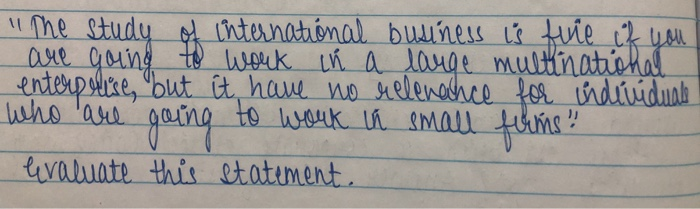 "The study of international business is fine if you
are going to work in a large multinational
enterprise, but it have no relevance for individuals
who are going to work in small firms"
Evaluate this statement.